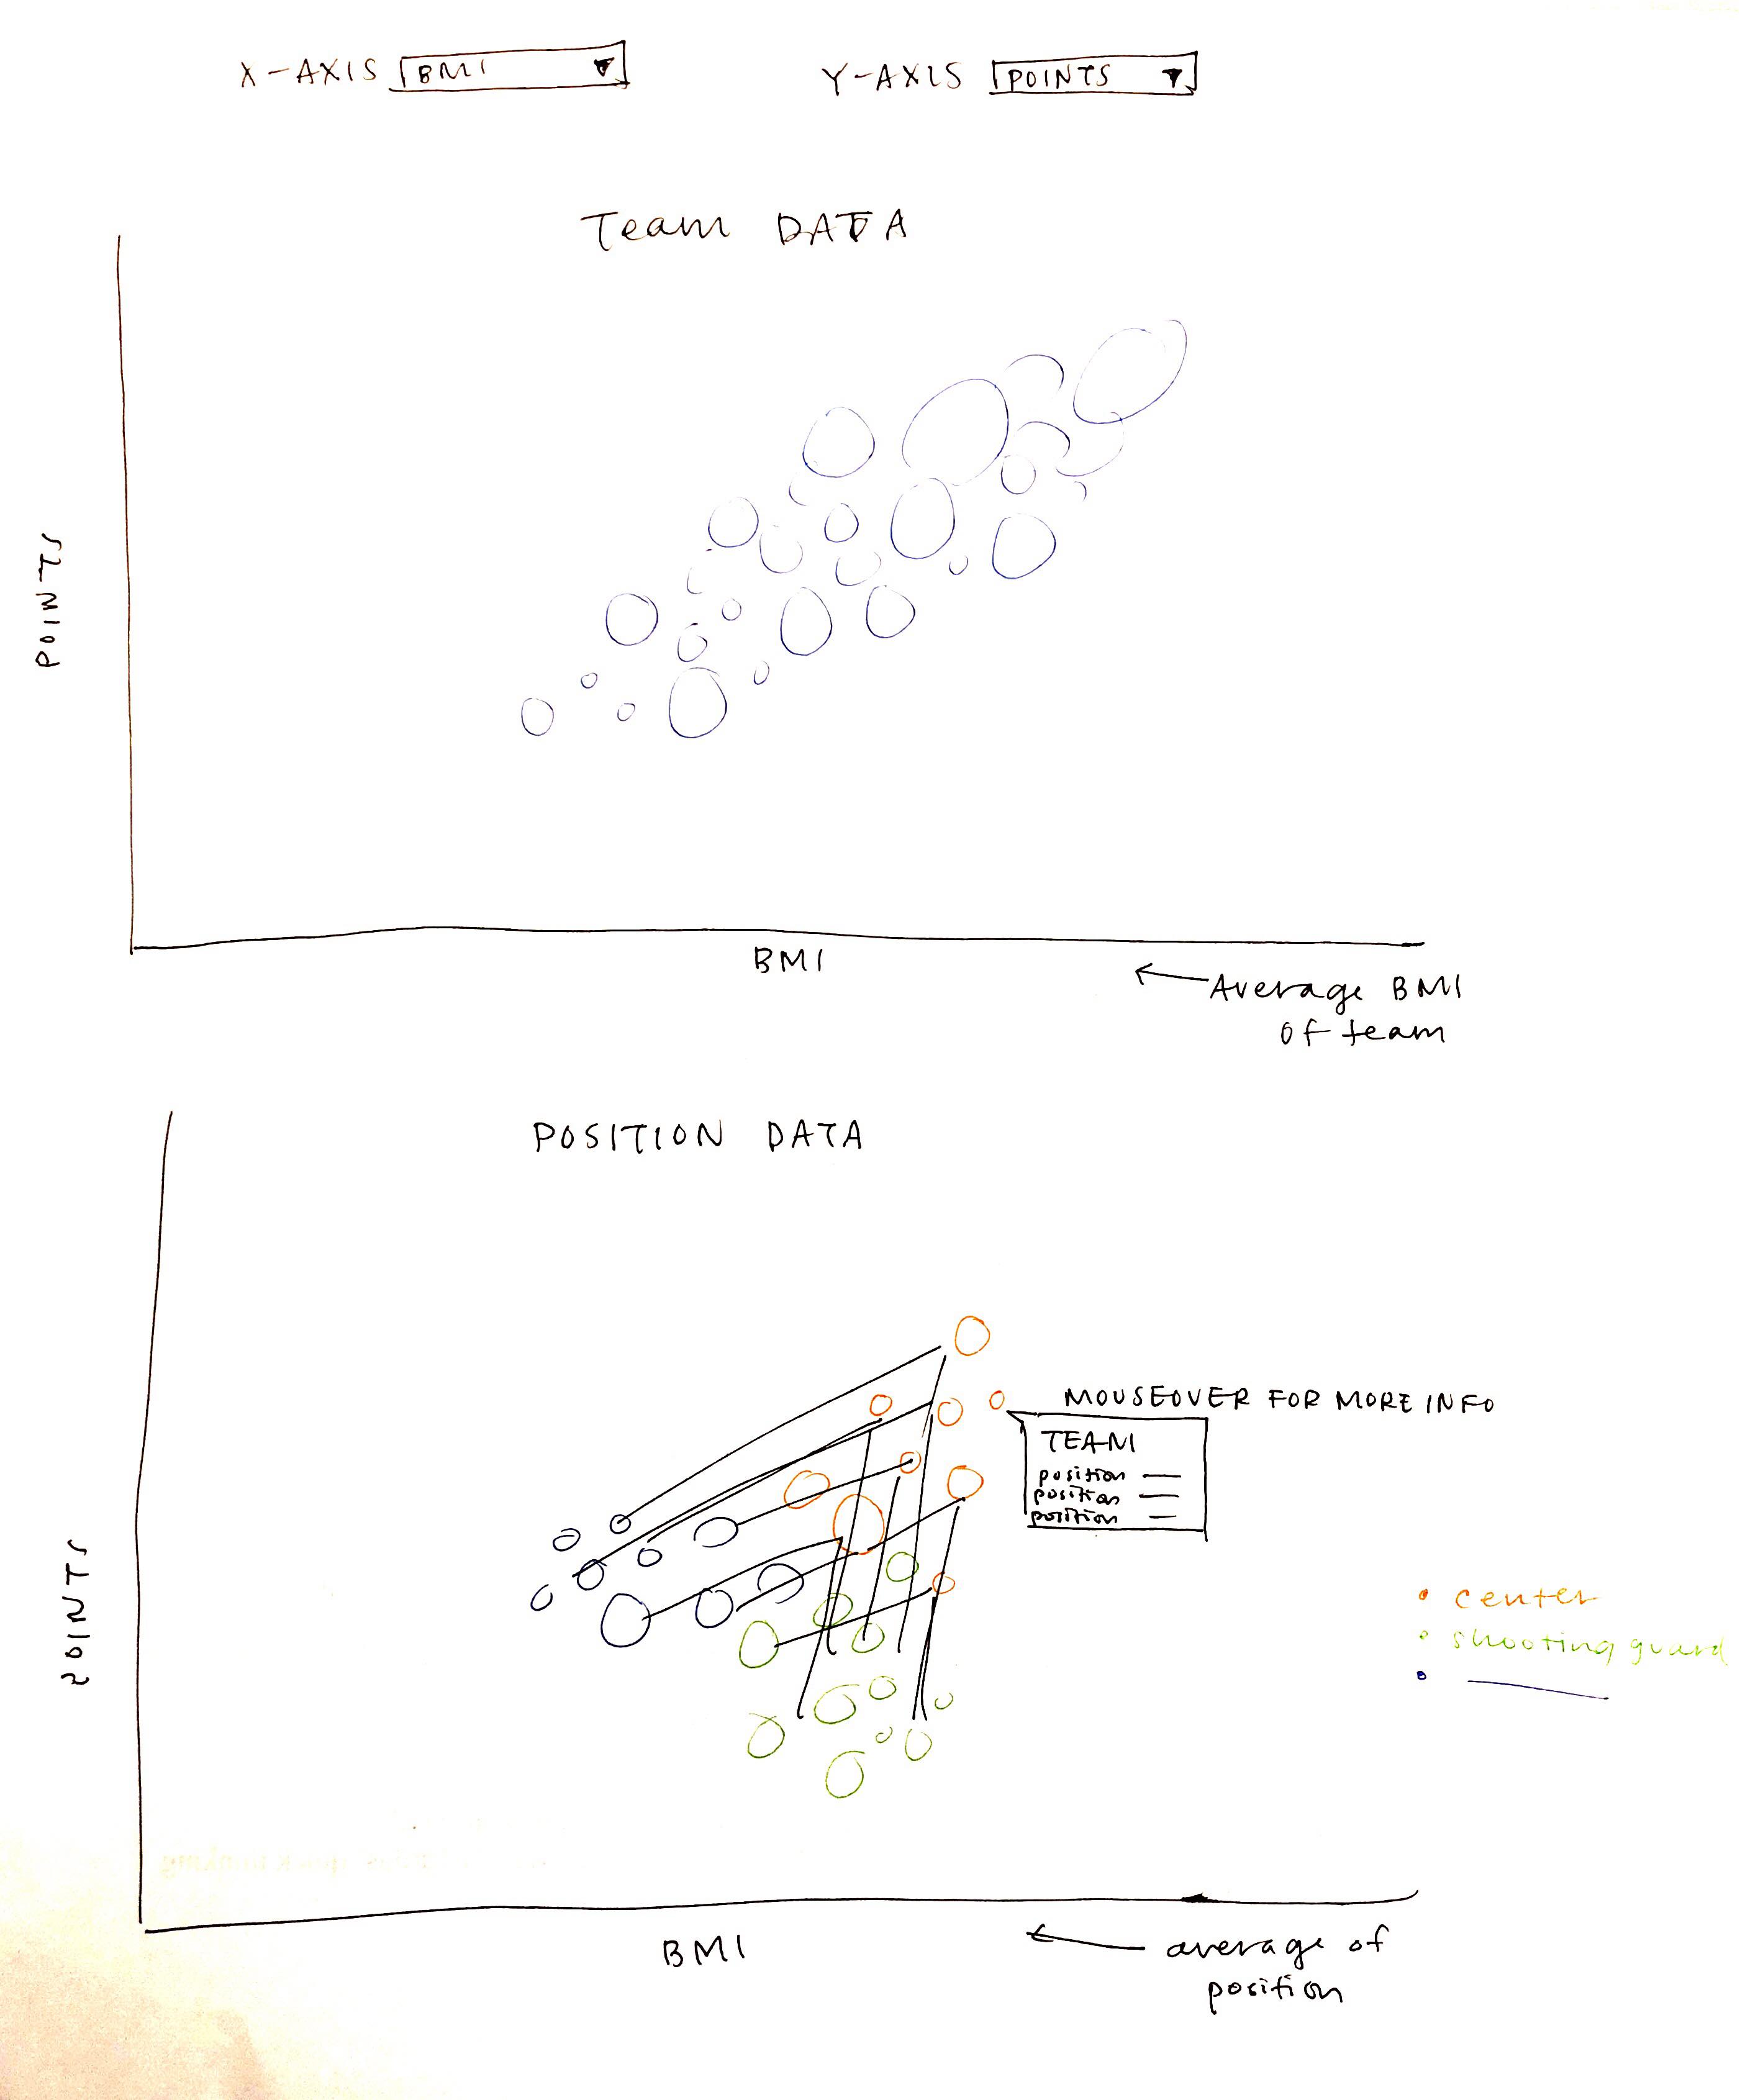 X-AXIS BMI
Y-AXIS POINTS
Team DATA
POINTS
BMI
Average BMI
of team
POSITION DATA
MOUSEOVER FOR MORE INFO
TEAM
position
position
position
POINTS
center
shooting guard
BMI
average of
position